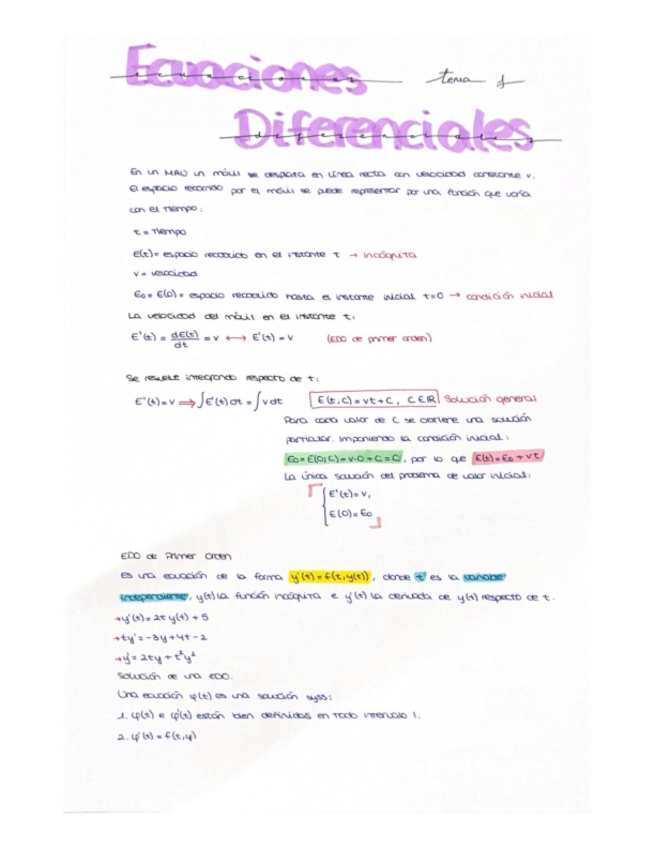 Ecuaciones tema 1
ecuaciones
Diferenciales
diferenciales
En un MRU un móvil se desplaza en línea recta con velocidad constante v.
El espacio recorrido por el móvil se puede representar por una función que varía
con el tiempo:
t = tiempo
E(t) = espacio recorrido en el instante t → incógnita
v = velocidad
E₀ = E(0) = espacio recorrido hasta el instante inicial t=0 → condición inicial
La velocidad del móvil en el instante t:
E'(t) = dE(t)/dt = v ⟷ E'(t) = v (EDO de primer orden)
Se resuelve integrando respecto de t:
E'(t) = v ⟹ ∫E'(t) dt = ∫v dt E(t;C) = vt + C, C ∈ ℝ Solución general
Para cada valor de C se obtiene una solución
particular. Imponiendo la condición inicial:
E₀ = E(0;C) = v·0 + C = C, por lo que E(t) = E₀ + vt
La única solución del problema de valor inicial:
E'(t) = v,
E(0) = E₀
EDO de Primer Orden
Es una ecuación de la forma y'(t) = f(t, y(t)), donde t es la variable
independiente, y(t) la función incógnita e y'(t) la derivada de y(t) respecto de t.
→ y'(t) = 2t y(t) + 5
→ ty' = -3y + 4t - 2
→ y' = 2ty + t²y²
Solución de una EDO.
Una ecuación φ(t) es una solución syss:
1. φ(t) e φ'(t) están bien definidos en todo intervalo I.
2. φ'(t) = f(t, φ)